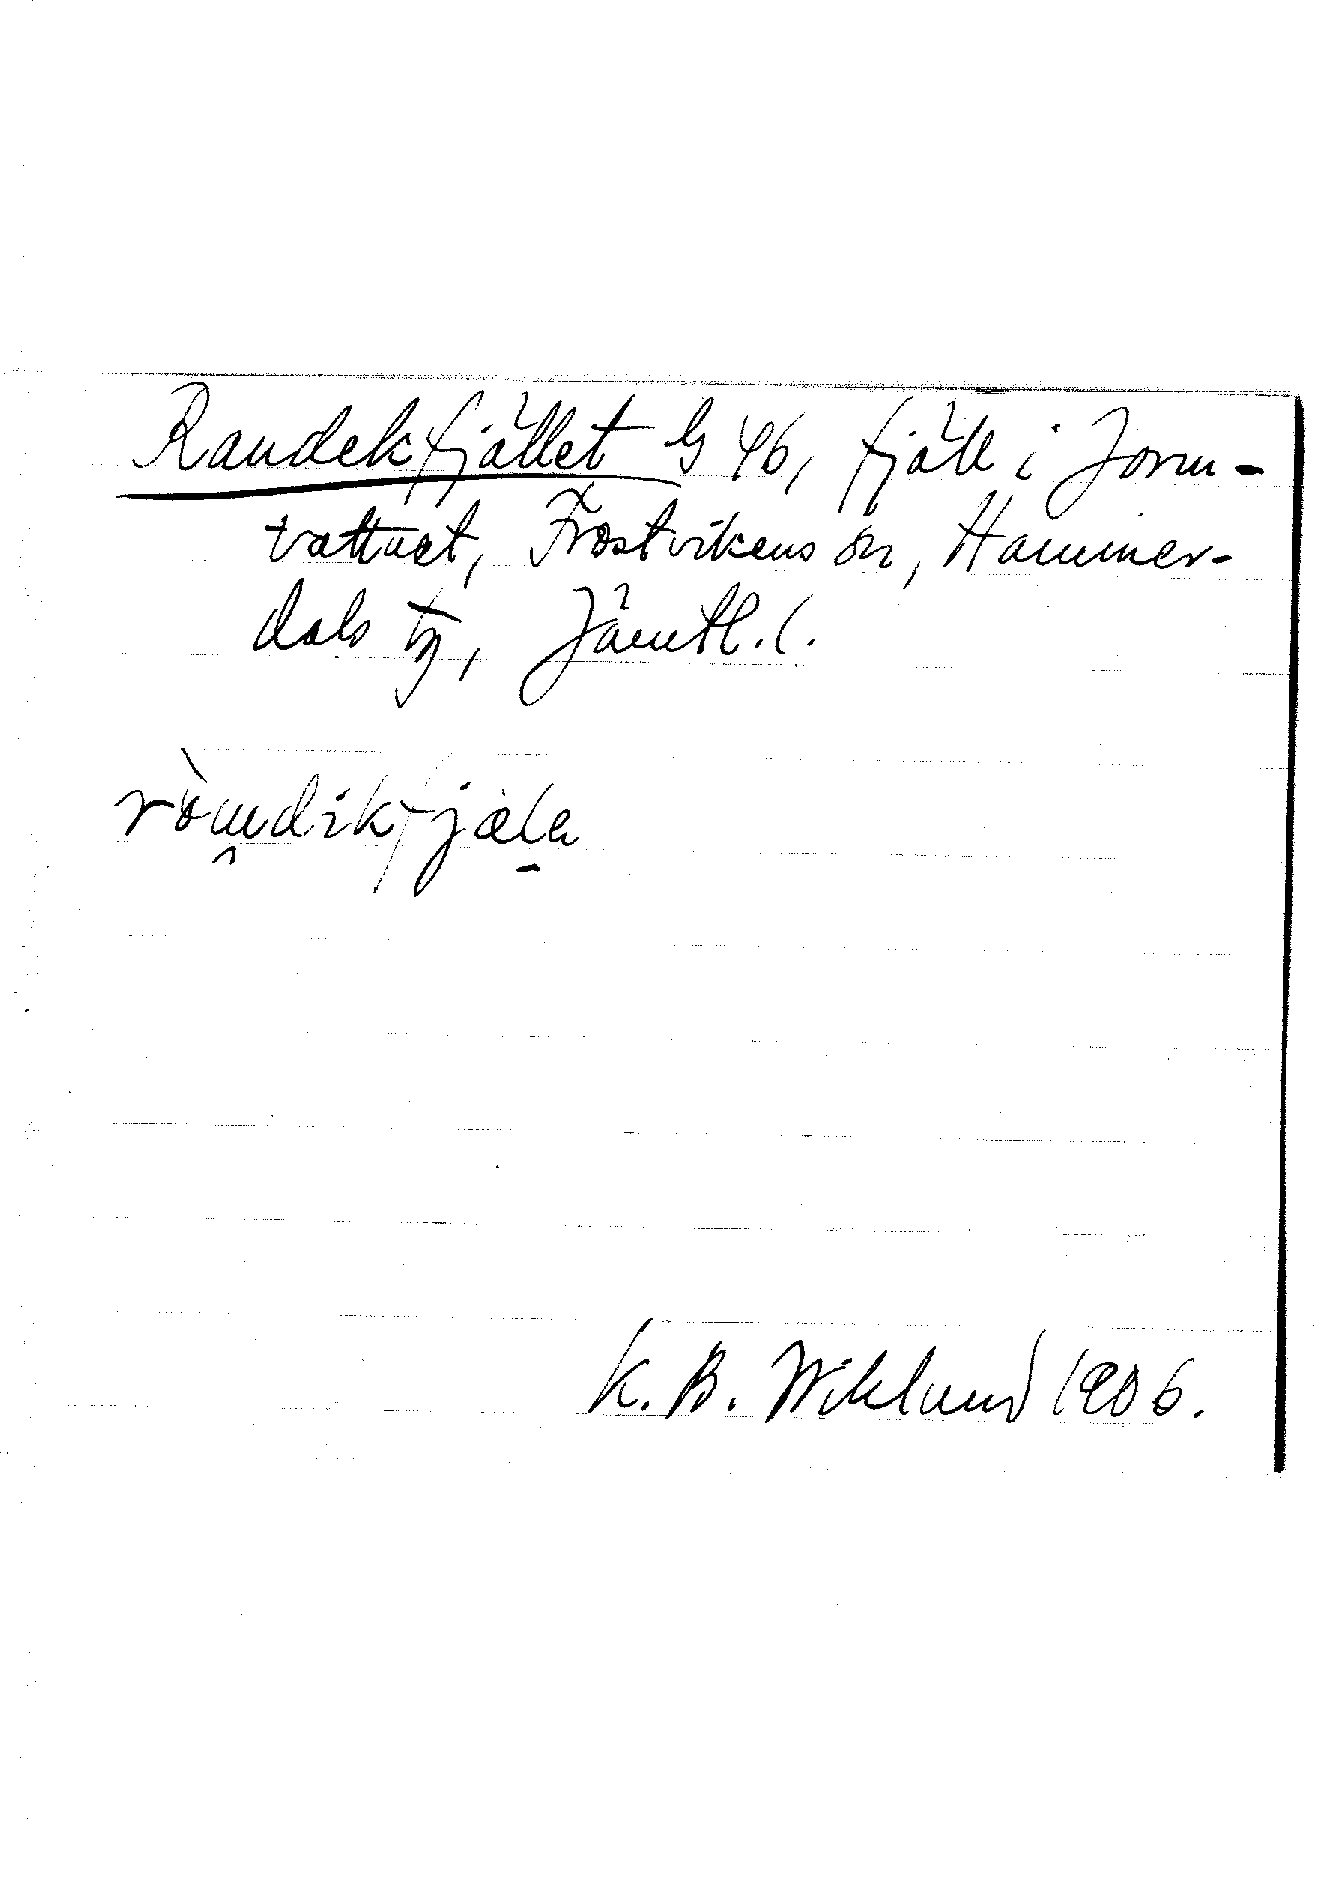 Raudekfjället G 46, fjäll i Jorm-
vattnet, Frostvikens sn, Hammer-
dals tg, Jämtl. l.
K. B. Wiklund 1906.